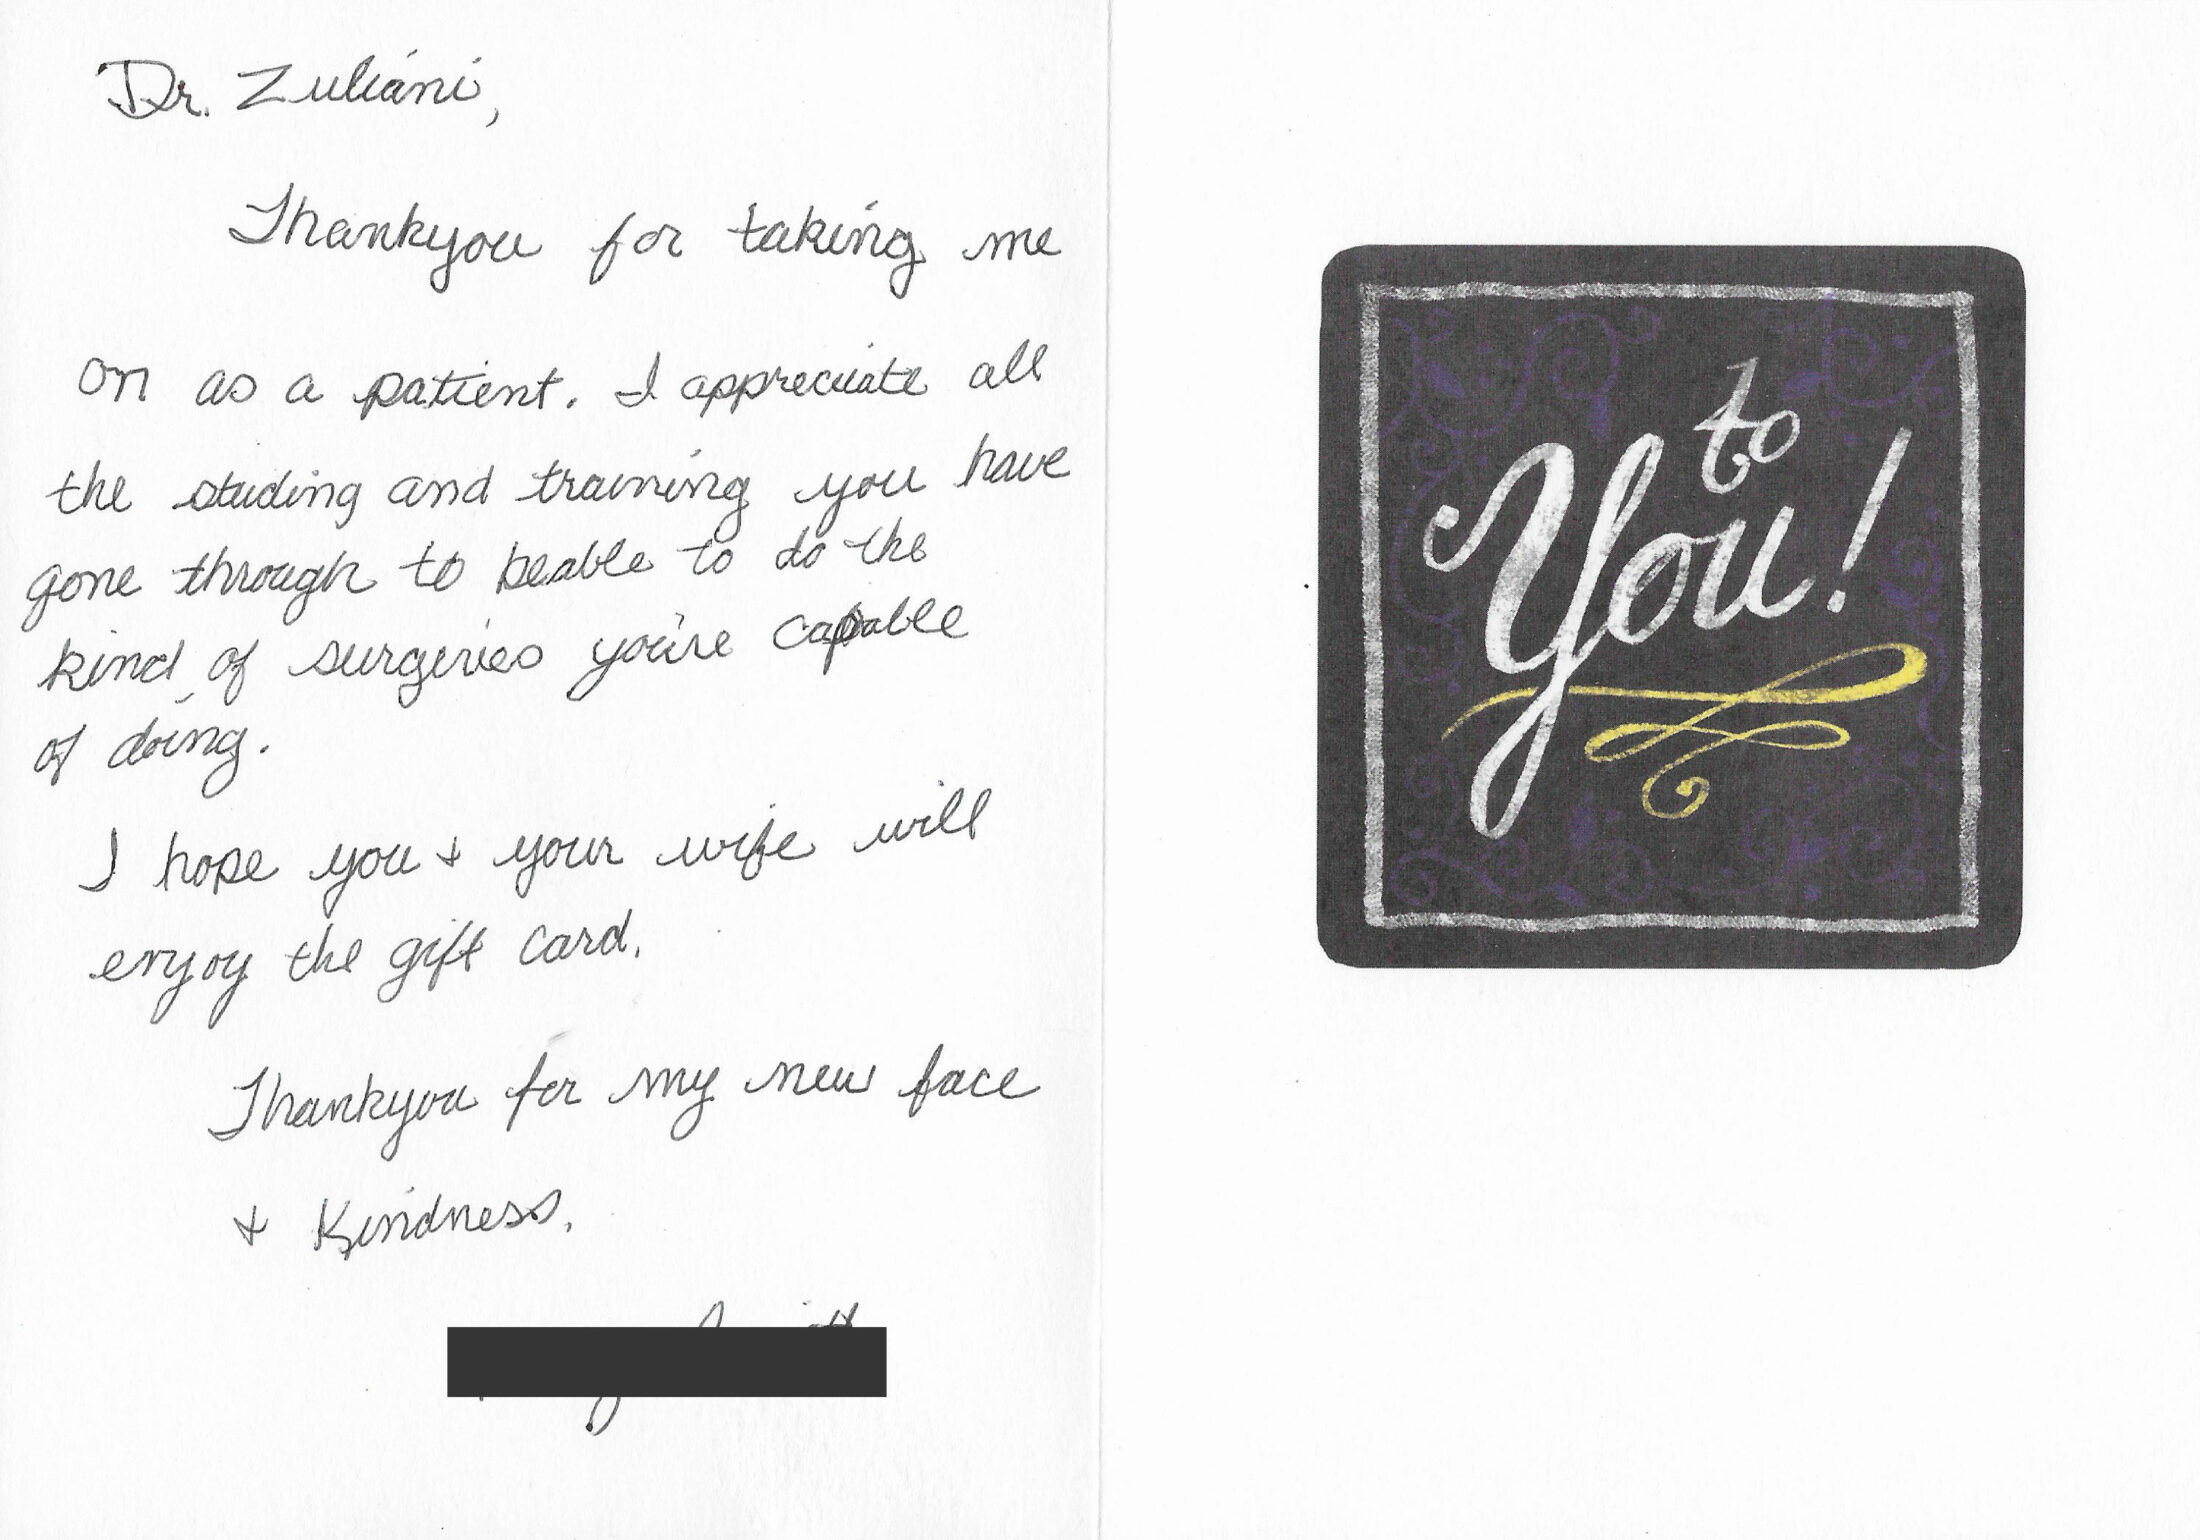 Dr. Zuliani,
Thankyou for taking me
on as a patient. I appreciate all
the studing and training you have
gone through to beable to do the
kind of surgeries you're capable
of doing.
I hope you + your wife will
enjoy the gift card.
Thankyou for my new face
+ Kindness.
to
You!